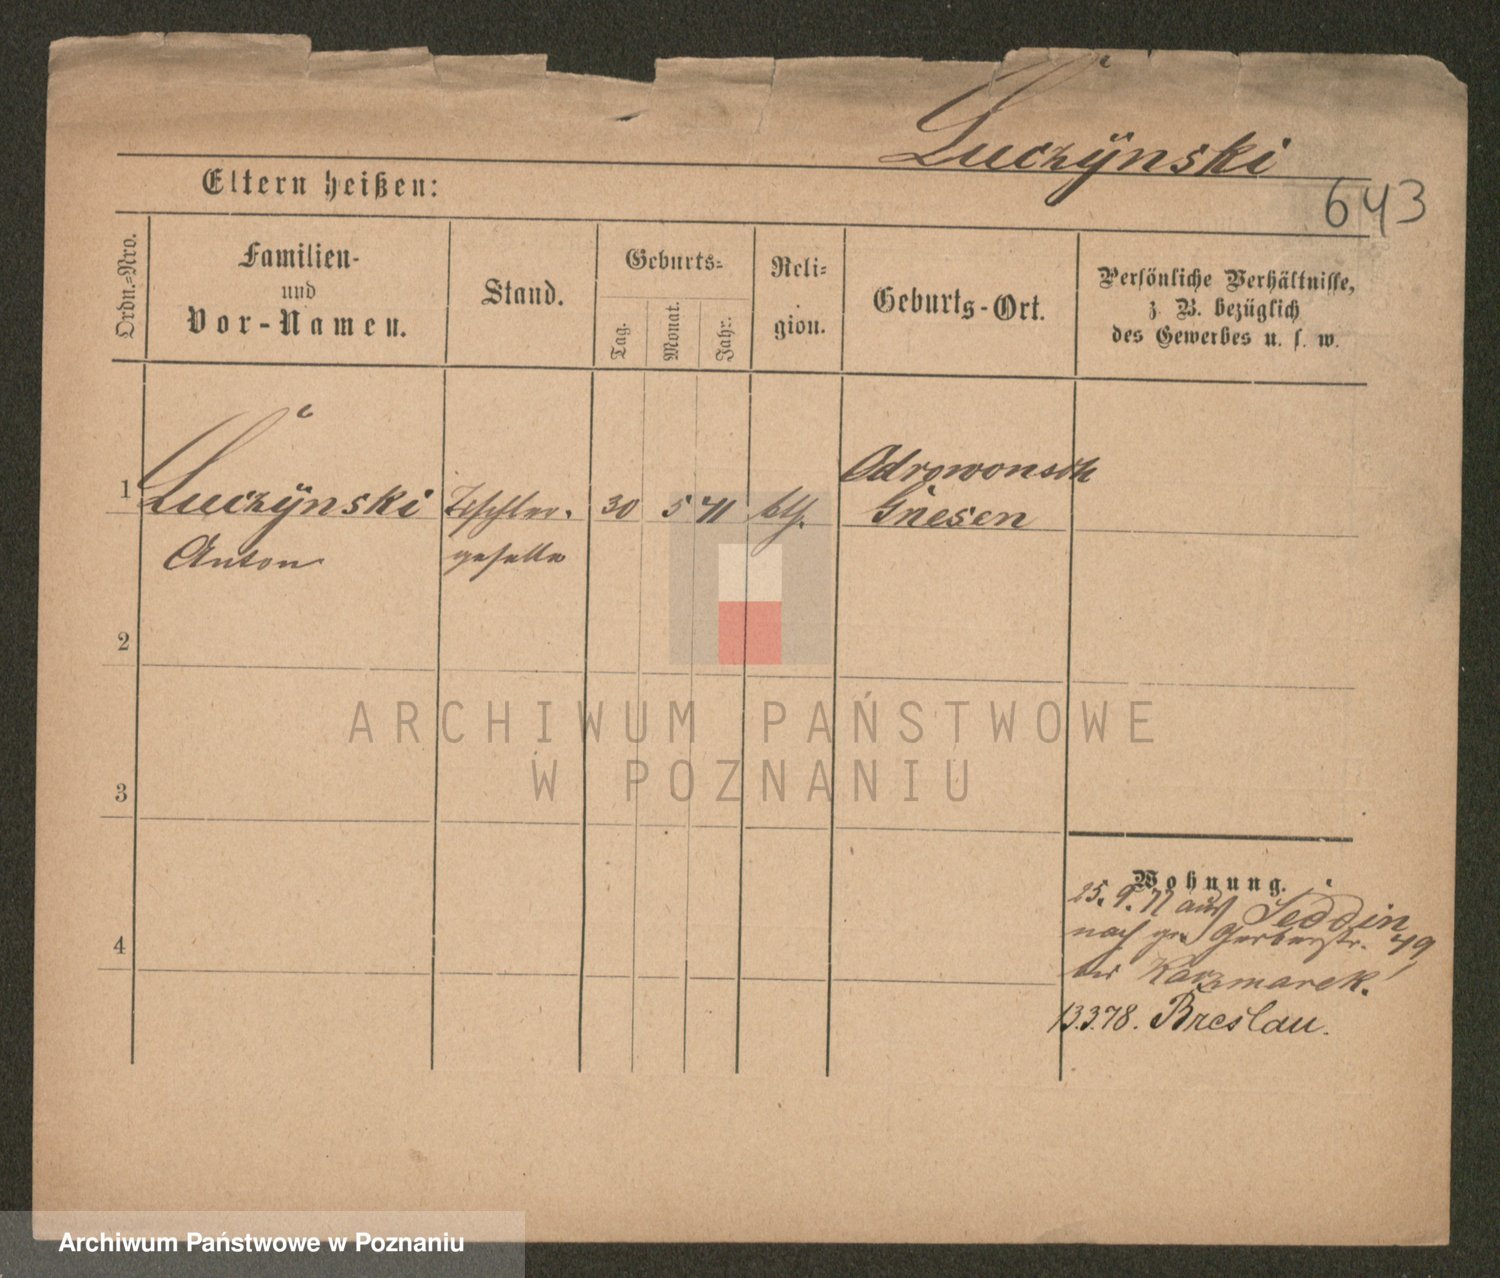 Luczÿnski
Eltern heißen:
643
Ordn.=Nro.
Familien-
und
Vor-Namen.
Stand.
Geburts=
Tag.
Monat.
Jahr.
Reli=
gion.
Geburts-Ort.
Persönliche Verhältnisse,
z. B. bezüglich
des Gewerbes u. s. w.
1
Luczÿnski
Anton
Tischler.
geselle
30
5
kth.
Gnesen
2
ARCHIWUM PAŃSTWOWE
W POZNANIU
3
Wohnung.
25. 9. 77 aus Seddin
nach gr. Gerberstr. 49
bei Kaczmarek.
4
13.3.78. Breslau.
Archiwum Państwowe w Poznaniu